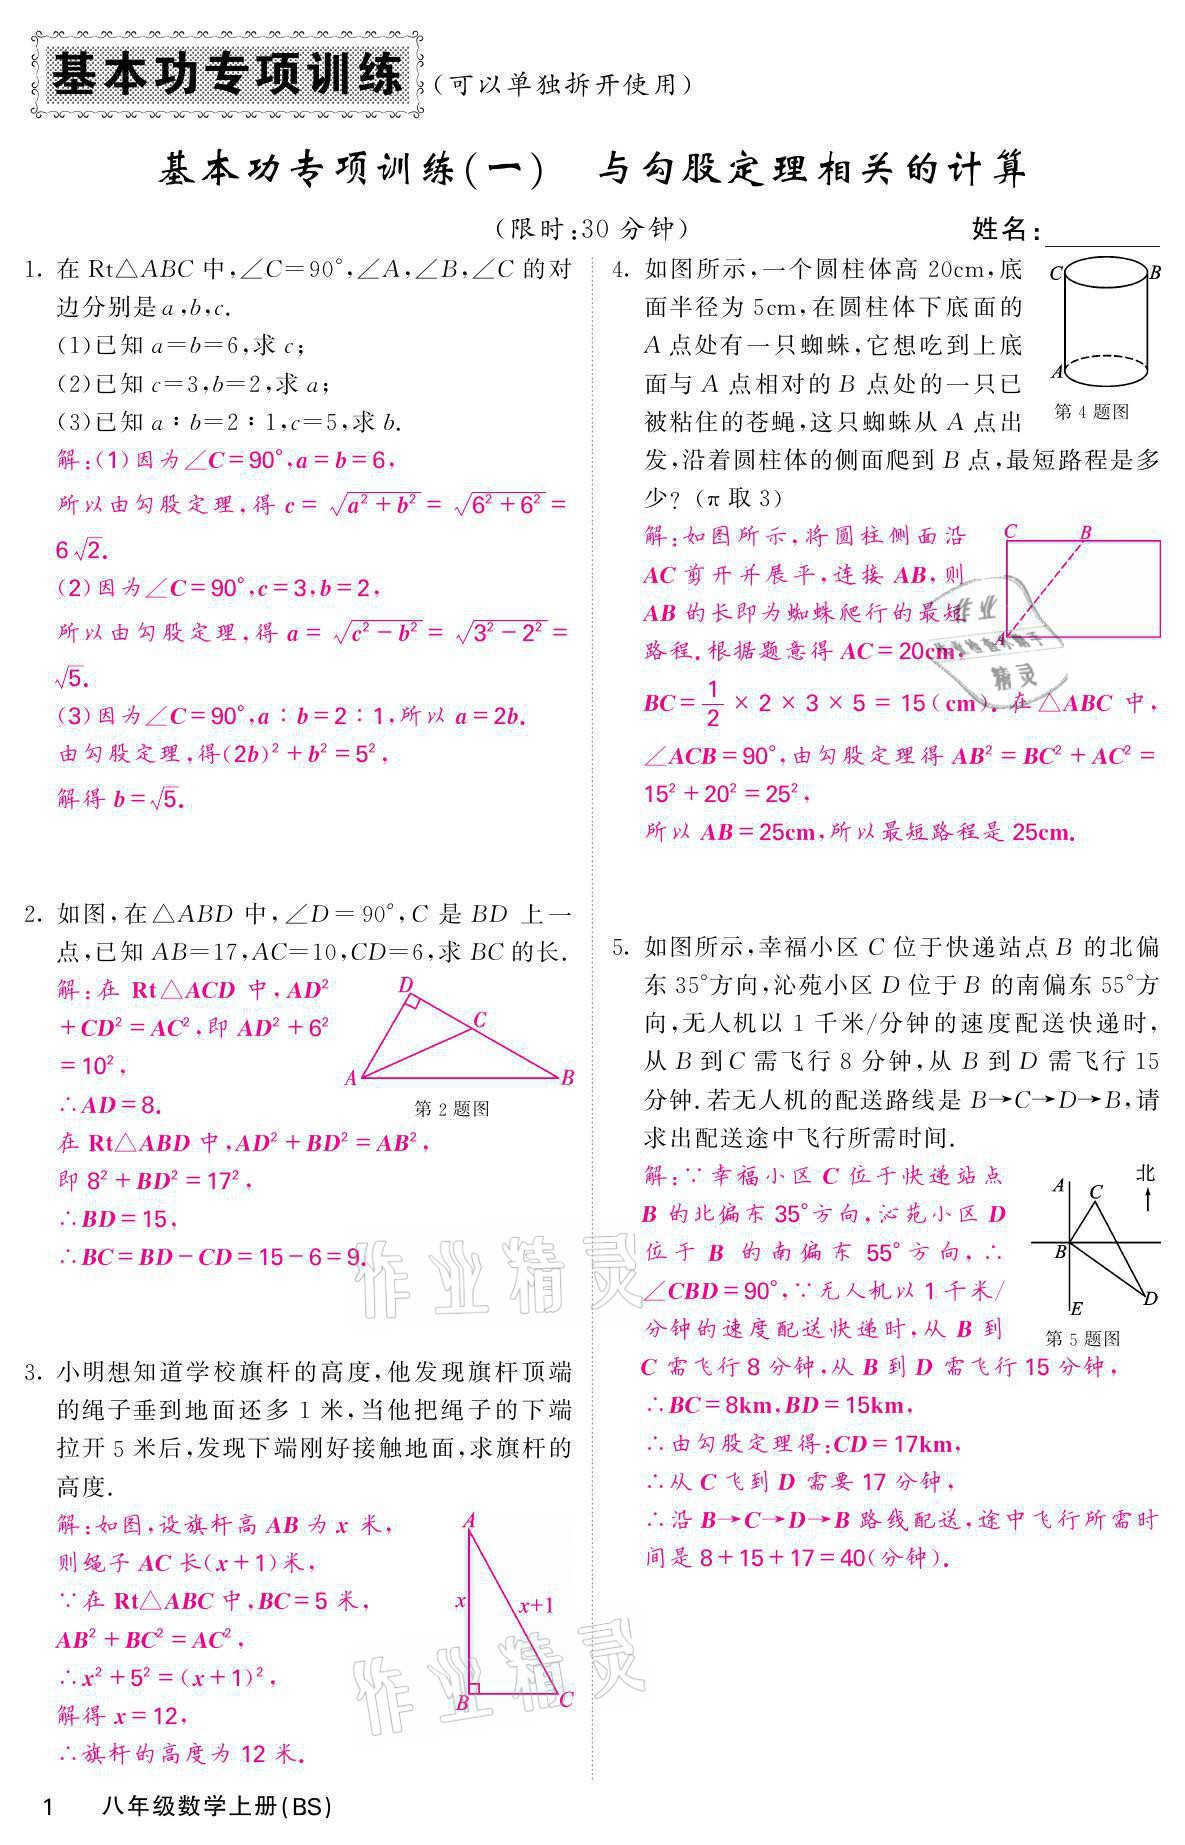 基本功专项训练(可以单独拆开使用)
基本功专项训练(一) 与勾股定理相关的计算
(限时:30分钟) 姓名:
1. 在 Rt△ABC 中,∠C=90°,∠A,∠B,∠C 的对
边分别是a,b,c.
(1)已知 a=b=6,求 c;
(2)已知 c=3,b=2,求 a;
(3)已知 a∶b=2∶1,c=5,求 b.
解:(1)因为∠C=90°,a=b=6,
所以由勾股定理,得 c=√(a²+b²)=√(6²+6²)=
6√2.
(2)因为∠C=90°,c=3,b=2,
所以由勾股定理,得 a=√(c²-b²)=√(3²-2²)=
√5.
(3)因为∠C=90°,a∶b=2∶1,所以 a=2b.
由勾股定理,得(2b)²+b²=5²,
解得 b=√5.
2. 如图,在△ABD 中,∠D=90°,C 是 BD 上一
点,已知 AB=17,AC=10,CD=6,求 BC 的长.
解:在 Rt△ACD 中,AD²
+CD²=AC²,即 AD²+6²
=10²,
∴AD=8.
在 Rt△ABD 中,AD²+BD²=AB²,
即 8²+BD²=17²,
∴BD=15,
∴BC=BD-CD=15-6=9.
D
C
A
B
第2题图
3. 小明想知道学校旗杆的高度,他发现旗杆顶端
的绳子垂到地面还多 1 米,当他把绳子的下端
拉开 5 米后,发现下端刚好接触地面,求旗杆的
高度.
解:如图,设旗杆高 AB 为 x 米,
则绳子 AC 长(x+1)米,
∵在 Rt△ABC 中,BC=5 米,
AB²+BC²=AC²,
∴x²+5²=(x+1)²,
解得 x=12,
∴旗杆的高度为 12 米.
A
x
x+1
B
C
4. 如图所示,一个圆柱体高 20cm,底
面半径为 5cm,在圆柱体下底面的
A 点处有一只蜘蛛,它想吃到上底
面与 A 点相对的 B 点处的一只已
被粘住的苍蝇,这只蜘蛛从 A 点出
发,沿着圆柱体的侧面爬到 B 点,最短路程是多
少?(π取3)
C
B
A
第4题图
解:如图所示,将圆柱侧面沿
AC 剪开并展平,连接 AB,则
AB 的长即为蜘蛛爬行的最短
路程.根据题意得 AC=20cm,
BC=1/2×2×3×5=15(cm).在△ABC 中,
∠ACB=90°,由勾股定理得 AB²=BC²+AC²=
15²+20²=25²,
所以 AB=25cm,所以最短路程是 25cm.
C
B
A
5. 如图所示,幸福小区 C 位于快递站点 B 的北偏
东 35°方向,沁苑小区 D 位于 B 的南偏东 55°方
向,无人机以 1 千米/分钟的速度配送快递时,
从 B 到 C 需飞行 8 分钟,从 B 到 D 需飞行 15
分钟.若无人机的配送路线是 B→C→D→B,请
求出配送途中飞行所需时间.
解:∵幸福小区 C 位于快递站点
B 的北偏东 35°方向,沁苑小区 D
位于 B 的南偏东 55°方向,∴
∠CBD=90°,∵无人机以 1 千米/
分钟的速度配送快递时,从 B 到
C 需飞行 8 分钟,从 B 到 D 需飞行 15 分钟,
∴BC=8km,BD=15km,
∴由勾股定理得:CD=17km,
∴从 C 飞到 D 需要 17 分钟,
∴沿 B→C→D→B 路线配送,途中飞行所需时
间是 8+15+17=40(分钟).
A
C
北
B
D
E
第5题图
作业精灵
作业精灵
作业
精灵
1 八年级数学上册(BS)